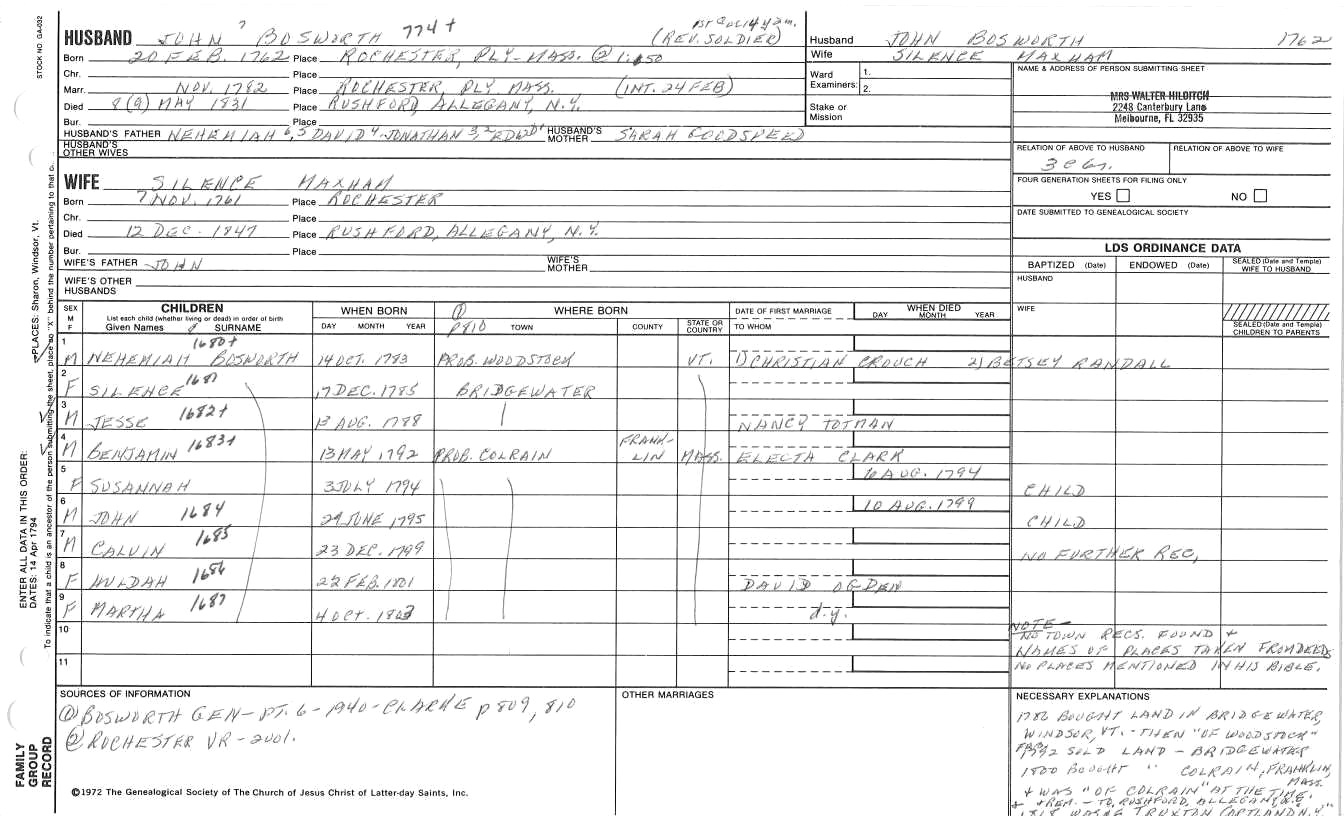 HUSBAND JOHN 7 BOSWORTH 774+ (REV. SOLDIER)
Born 20 FEB. 1762 Place ROCHESTER, PLY-MASS. @ 1:450
Chr. Place
Marr. NOV. 1782 Place ROCHESTER, PLY. MASS. (INT. 24 FEB)
Died 8(9) MAY 1831 Place RUSHFORD, ALLEGANY, N.Y.
Bur. Place
HUSBAND'S FATHER NEHEMIAH 6,5 DAVID 4 JONATHAN 3,2 EDWD 1 HUSBAND'S MOTHER SARAH GOODSPEED
HUSBAND'S OTHER WIVES
WIFE SILENCE MAXHAM
Born 7 NOV. 1761 Place ROCHESTER
Chr. Place
Died 12 DEC. 1847 Place RUSHFORD, ALLEGANY, N.Y.
Bur. Place
WIFE'S FATHER JOHN WIFE'S MOTHER
WIFE'S OTHER HUSBANDS
Husband JOHN BOSWORTH 1762
Wife SILENCE MAXHAM
Ward Examiners: 1.
2.
Stake or Mission
NAME & ADDRESS OF PERSON SUBMITTING SHEET
MRS WALTER HILDITCH
2248 Canterbury Lane
Melbourne, FL 32935
RELATION OF ABOVE TO HUSBAND RELATION OF ABOVE TO WIFE
FOUR GENERATION SHEETS FOR FILING ONLY
YES NO
DATE SUBMITTED TO GENEALOGICAL SOCIETY
LDS ORDINANCE DATA
BAPTIZED (Date) ENDOWED (Date) SEALED (Date and Temple) WIFE TO HUSBAND
HUSBAND
WIFE
SEALED (Date and Temple) CHILDREN TO PARENTS
SEX M F CHILDREN WHEN BORN WHERE BORN DATE OF FIRST MARRIAGE WHEN DIED
List each child (whether living or dead) in order of birth
Given Names SURNAME DAY MONTH YEAR p810 TOWN COUNTY STATE OR COUNTRY TO WHOM DAY MONTH YEAR
1 M NEHEMIAH BOSWORTH 1680+ 14 OCT. 1783 PROB. WOODSTOCK VT. 1) CHRISTIAN CROUCH 2) BETSEY RANDALL
2 F SILENCE 1681 17 DEC. 1785 BRIDGEWATER
3 M JESSE 1682+ 13 AUG. 1788 NANCY TOTMAN
4 M BENJAMIN 1683+ 13 MAY 1792 PROB. COLRAIN FRANK-LIN MASS. ELECTA CLARK
5 F SUSANNAH 3 JULY 1794 16 AUG. 1794 CHILD
6 M JOHN 1684 29 JUNE 1795 10 AUG. 1799 CHILD
7 M CALVIN 1685 23 DEC. 1799 NO FURTHER REC,
8 F HULDAH 1686 22 FEB. 1801 DAVID OGDEN
9 F MARTHA 1687 4 OCT. 1803 d.y.
10
11
NOTE—
NO TOWN RECS. FOUND +
NAMES OF PLACES TAKEN FROM DEEDS
NO PLACES MENTIONED IN HIS BIBLE.
SOURCES OF INFORMATION
① BOSWORTH GEN-PT. 6-1940-CLARKE p 809, 810
② ROCHESTER VR-2001.
OTHER MARRIAGES
NECESSARY EXPLANATIONS
1786 BOUGHT LAND IN BRIDGEWATER,
WINDSOR, VT. - THEN "OF WOODSTOCK"
1792 SOLD LAND - BRIDGEWATER
1800 BOUGHT " COLRAIN, FRANKLIN, MASS.
+ WAS "OF COLRAIN" AT THE TIME.
+ REM. - TO RUSHFORD, ALLEGANY,
©1972 The Genealogical Society of The Church of Jesus Christ of Latter-day Saints, Inc.
FAMILY GROUP RECORD
STOCK NO. GA-032
ENTER ALL DATA IN THIS ORDER:
DATES: 14 Apr 1794
PLACES: Sharon, Windsor, Vt.